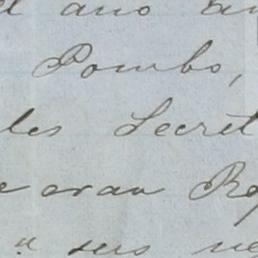 ano
Pombo,
les Secret
eran Re
a sus ne